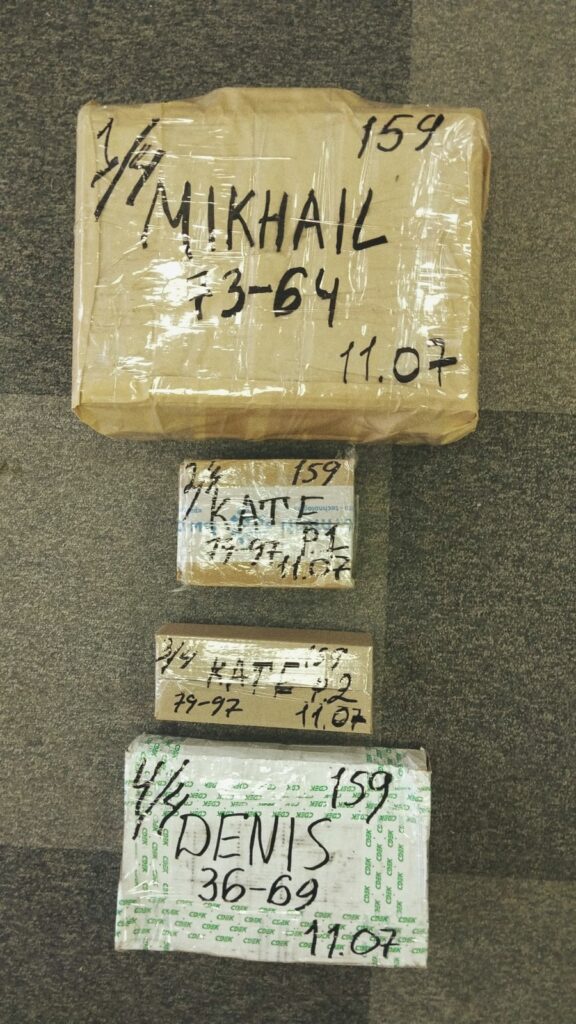 1/4 159
MIKHAIL
73-64
11.07
2/4 159
KATE
79-97 P.1
11.07
3/4 159
KATE P.2
79-97 11.07
4/4 159
DENIS
36-69
11.07
CDEK